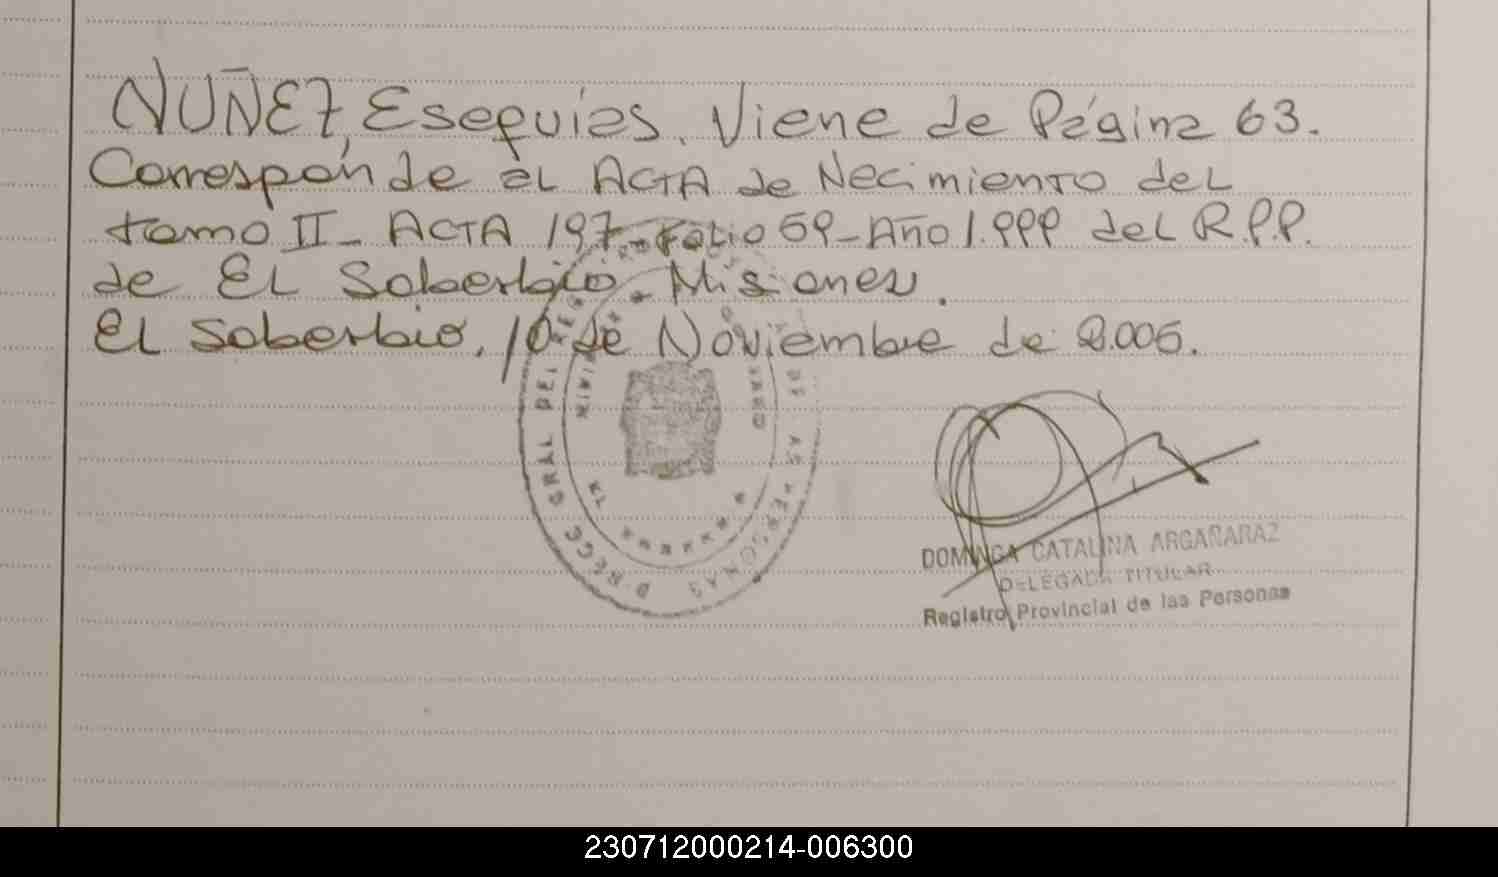 NUÑEZ, Esequías. Viene de Página 63.
Corresponde al ACTA de Nacimiento del
tomo II - ACTA 197 - Folio 59 - Año 1.999 del R.P.P.
de El Soberbio - Misiones.
El Soberbio, 10 de Noviembre de 2.005.
DIRECC GRAL DEL REG DE AS PERSONAS
DOMINGA CATALINA ARGAÑARAZ
DELEGADA TITULAR
Registro Provincial de las Personas
230712000214-006300